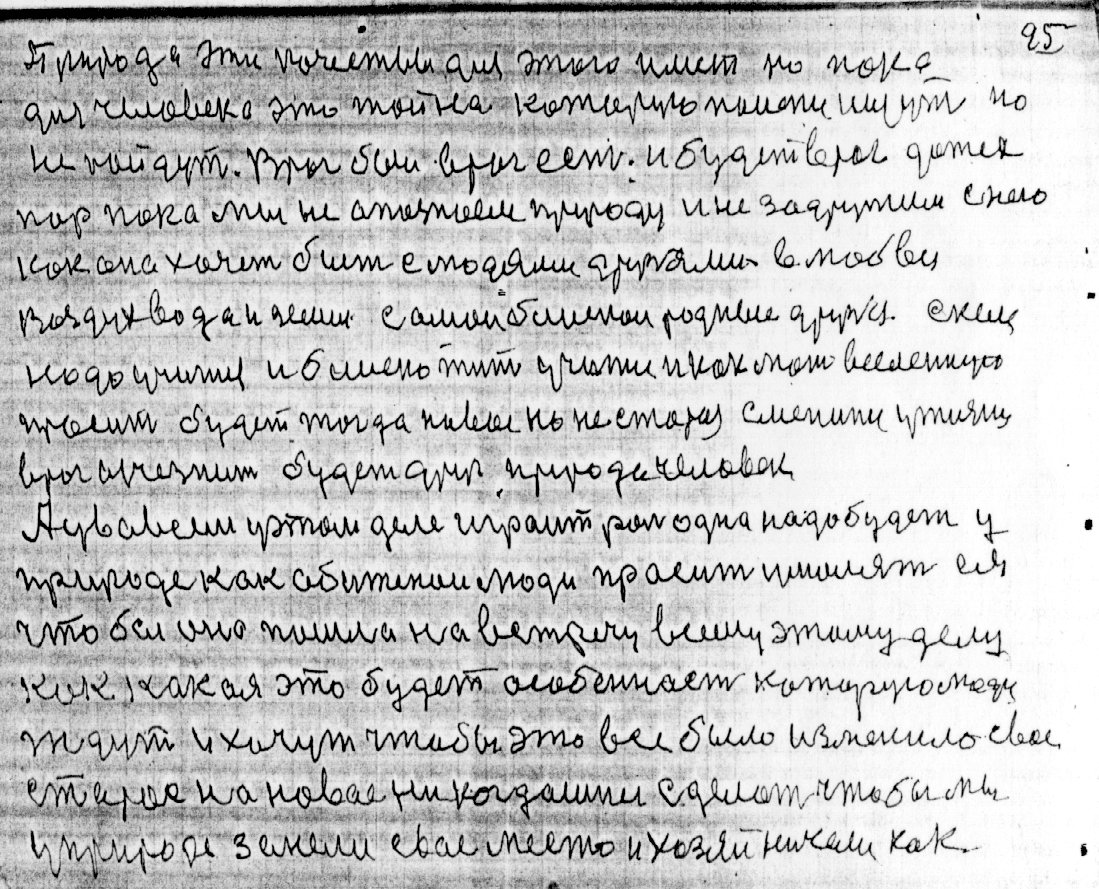 95
Природа эти качества для этого имет но пока
для человека это тайна которую поиски ищут но
не найдут. Враг был враг есть. и будет враг до тех
пор пока мы не опознаем природу и не задружим с нею
как она хочет быт с людями друзями в любви
воздух вода и земля самои близкои родные друзя. с кем
надо учитця и близко тит учити и как мат вселенную
просит будет тогда новое но не старая смепити
враг исчезнит будет друг природа человек
А у всем у этом деле играит рол одна надо будет у
природе как обиженои люди прасит умолят ея
что бы она пошла на встречу всему этому делу
как какая это будет особенаст которую люди
ждут и хочут чтобы это все было изменило свое
старое на новае никогдашни сделат чтобы мы
у природе занели свае место и хозяйничали как